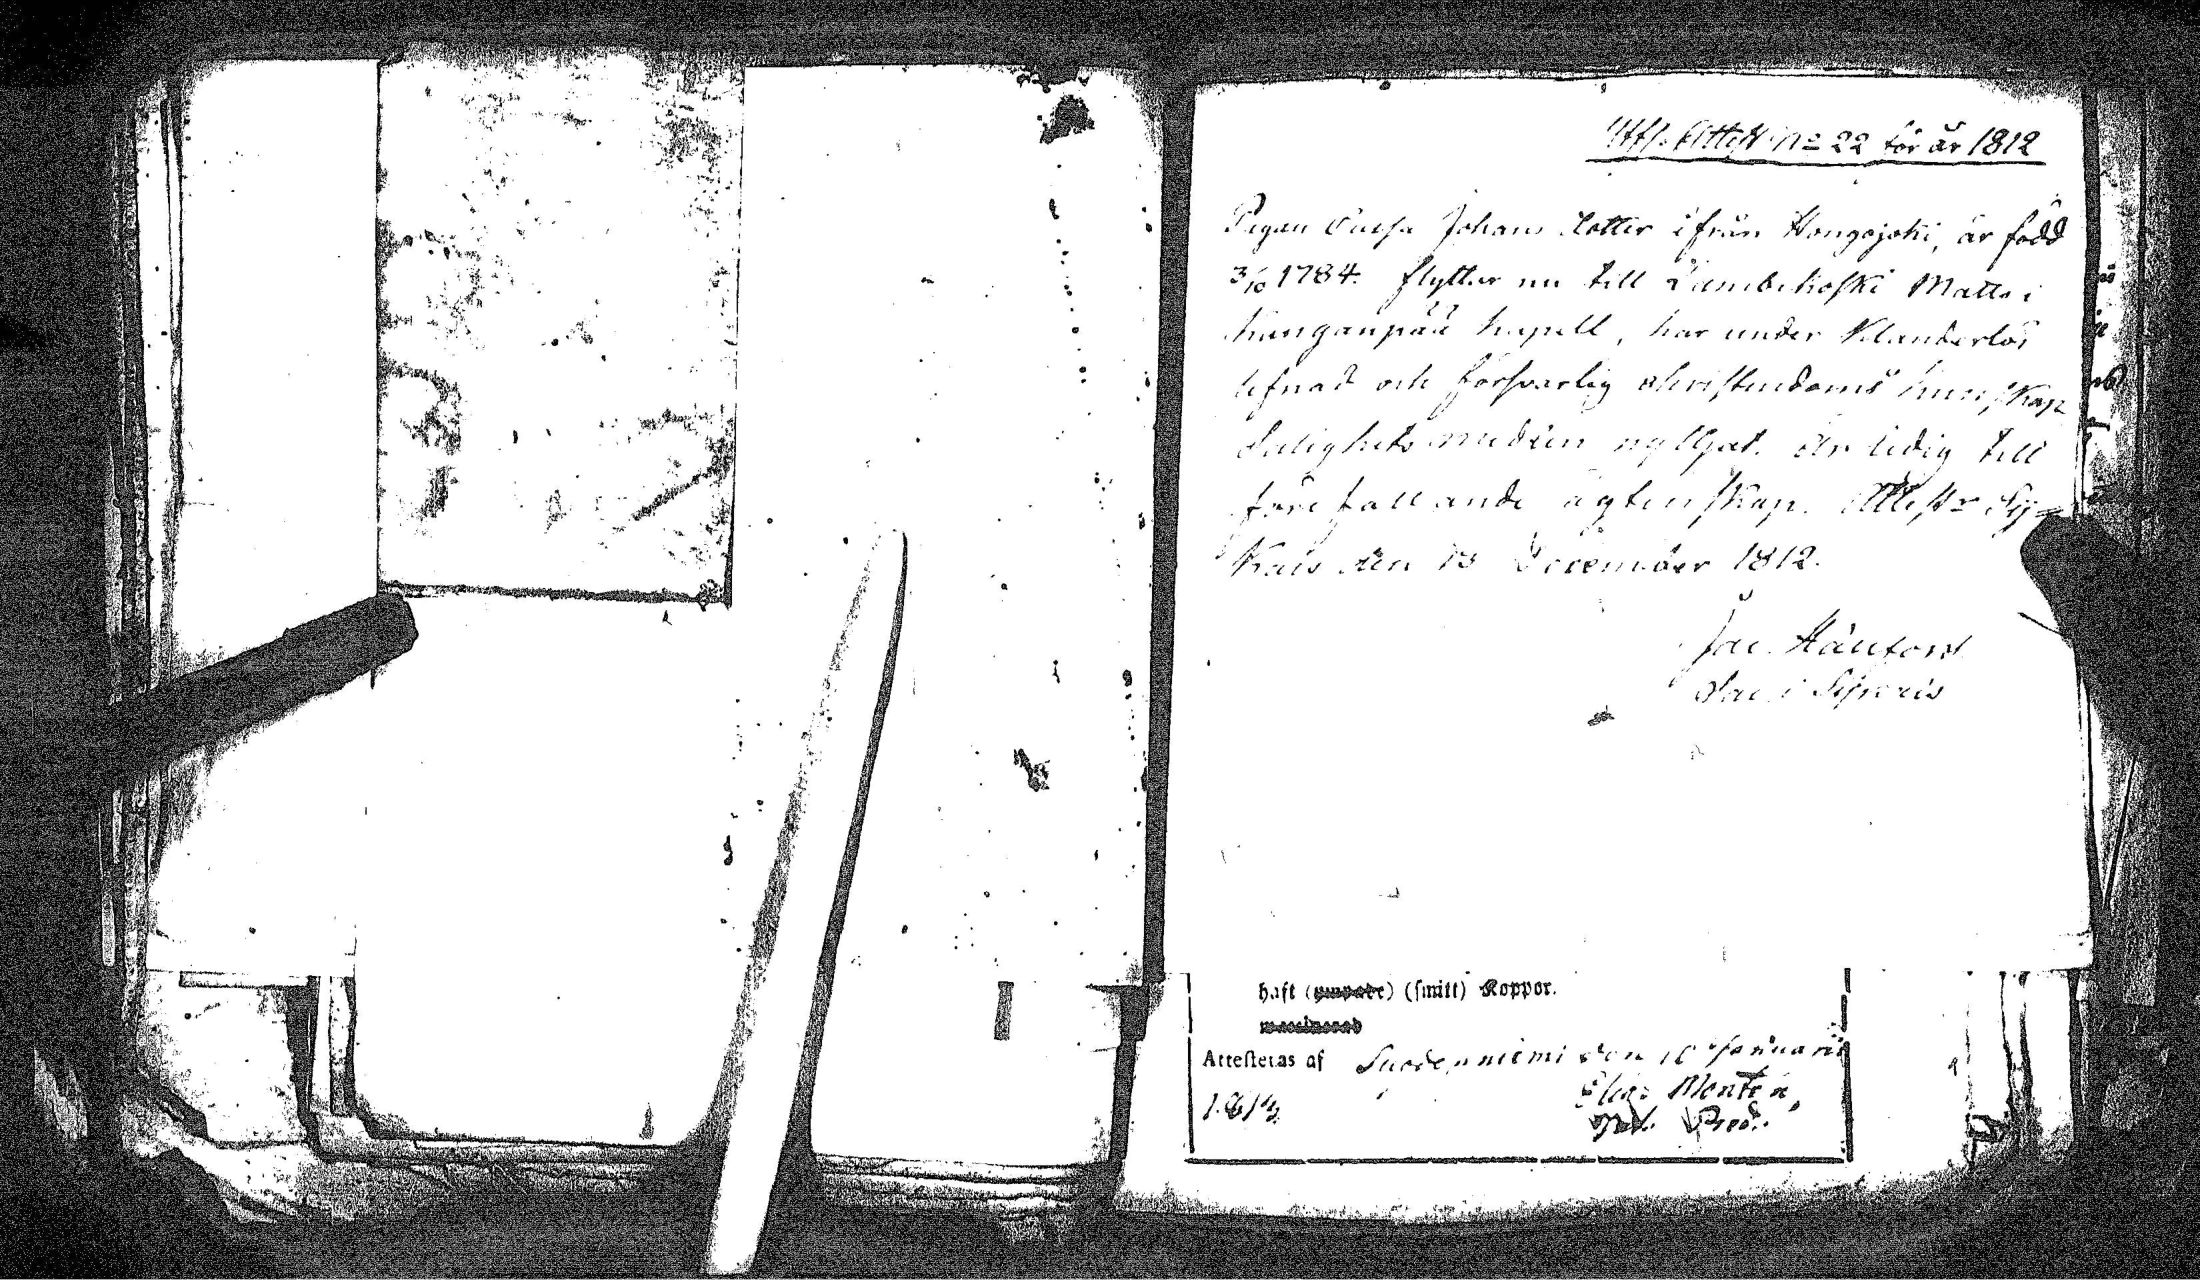 Utfl. Attest No 22 för år 1812
Pigan Caisa Johans dotter ifrån Hongojoki, är född
3/10 1784. flyttar nu till Lambikoski Matts i
Kanganpää Kapell, har under Klanderlös
lefnad och försvarlig christendoms kunskap
Salighets medlen nyttjat. är ledig till
förefallande ägtenskap. Attestr. Sij=
Kais den 13 December 1812.
Jac.
Sac. i
haft (smitt) Koppor.
Attesteras af Suodenniemi den 10 Januarii
1813.
Elias Montén,
Past. Pred.